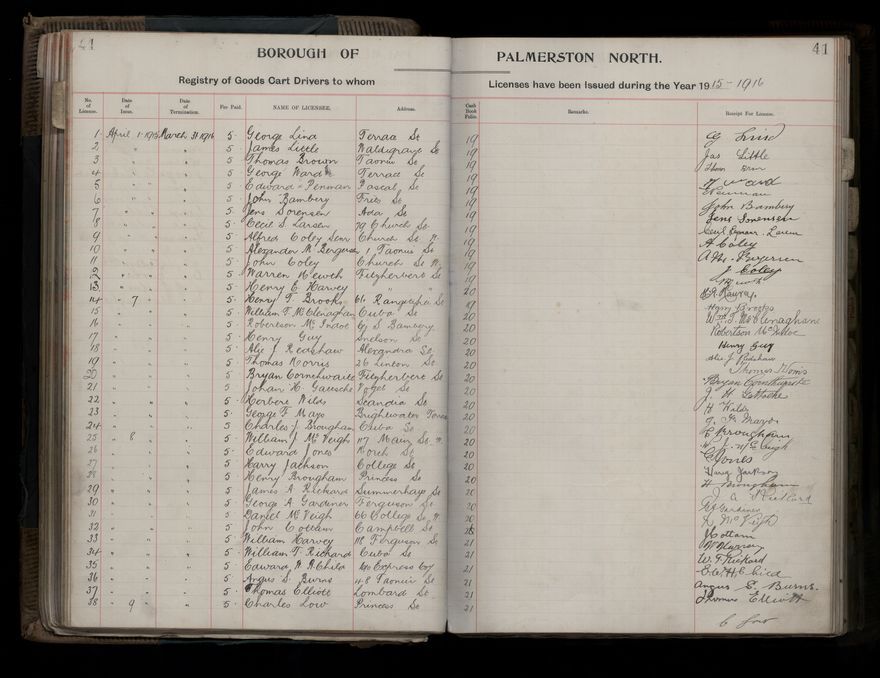 41 41
BOROUGH OF PALMERSTON NORTH.
Registry of Goods Cart Drivers to whom Licenses have been Issued during the Year 1915-1916
No. of License. Date of Issue. Date of Termination. Fee Paid. NAME OF LICENSEE. Address. Cash Book Folio. Remarks. Receipt For License.
1 April 1 1915 March 31 1916 5 - George Lind Terrace St 19 G Lind
2 " " " 5 - James Little Waldegrave St 19 Jas Little
3 " " " 5 - Thomas Brown Taonui St 19
4 " " " 5 - George Ward Terrace St 19 Ward
5 " " " 5 - Edward Penman Pascal St 19 E Penman
6 " " " 5 - John Bambery St 19 John Bambery
7 " " " 5 - Jens Sorensen Ada St 19 Jens Sorensen
8 " " " 5 - Cecil S Larsen 79 Church St 19 Cecil Larsen
9 " " " 5 - Alfred Coley Senr Church St W. 19 A Coley
10 " " " 5 - Alexander M Ferguson 1 Taonui St 19
11 " " " 5 - John Coley Church St W. 19 J. Coley
12 " " " 5 - Warren Fitzherbert St 19
13 " " " 5 - Henry E Harvey " " 20
14 " 7 " 5 - Henry T Brooks 66 Rangitikei St 19 Harry Brooks
15 " " " 5 William F McClenaghan Cuba St 20 Wm F. McClenaghan
16 " " " 5 Robertson Mc 69 S Bambery 20 Robertson Mc
17 " " " 5 Henry Guy Snelson St 20 Henry Guy
18 " " " 5 Alic J Redshaw Alexandra St 20 Alic J Redshaw
19 " " " 5 Thomas Norris 26 Linton St 20 Thomas
20 " " " 5 Bryan Cornthwaite Fitzherbert St 20 Bryan Cornthwaite
21 " " " 5 Johan H. Gatsche Vogel St 20 J. H
22 " " " 5 Herbert Wilds Scandia St 20 H Wilds
23 " " " 5 George F Mayo Brightwater Terrace 20
24 " " " 5 Charles J. Brougham Cuba St 20 C Brougham
25 " 8 " 5 William J McVeigh 117 Main St W. 20
26 " " " 5 Edward Jones St 20 E Jones
27 " " " 5 Harry Jackson College St 20 Harry Jackson
28 " " " 5 Henry Brougham Princess St 20 H Brougham
29 " " " 5 - James A Rickard Summerhays St 20 J A Rickard
30 " " " 5 - George A Gardiner Ferguson St 20 Gardiner
31 " " " 5 - Daniel McVeigh 66 College St W. 20 D McVeigh
32 " " " 5 - John Cottam Campbell St J Cottam
33 " " " 5 - William Harvey 118 Ferguson St 21 W Harvey
34 " " " 5 - William T. Rickard Cuba St 21 W. T Rickard
35 " " " 5 - Edward W H Child C/o Express Coy 21 Child
36 " " " 5 - Angus S. Burns 48 Taonui St 21 Angus S. Burns.
37 " " " 5 - Thomas Elliott Lombard St 21 Thomas Elliott
38 " 9 " 5 - Charles Low Princess St 21 C Low